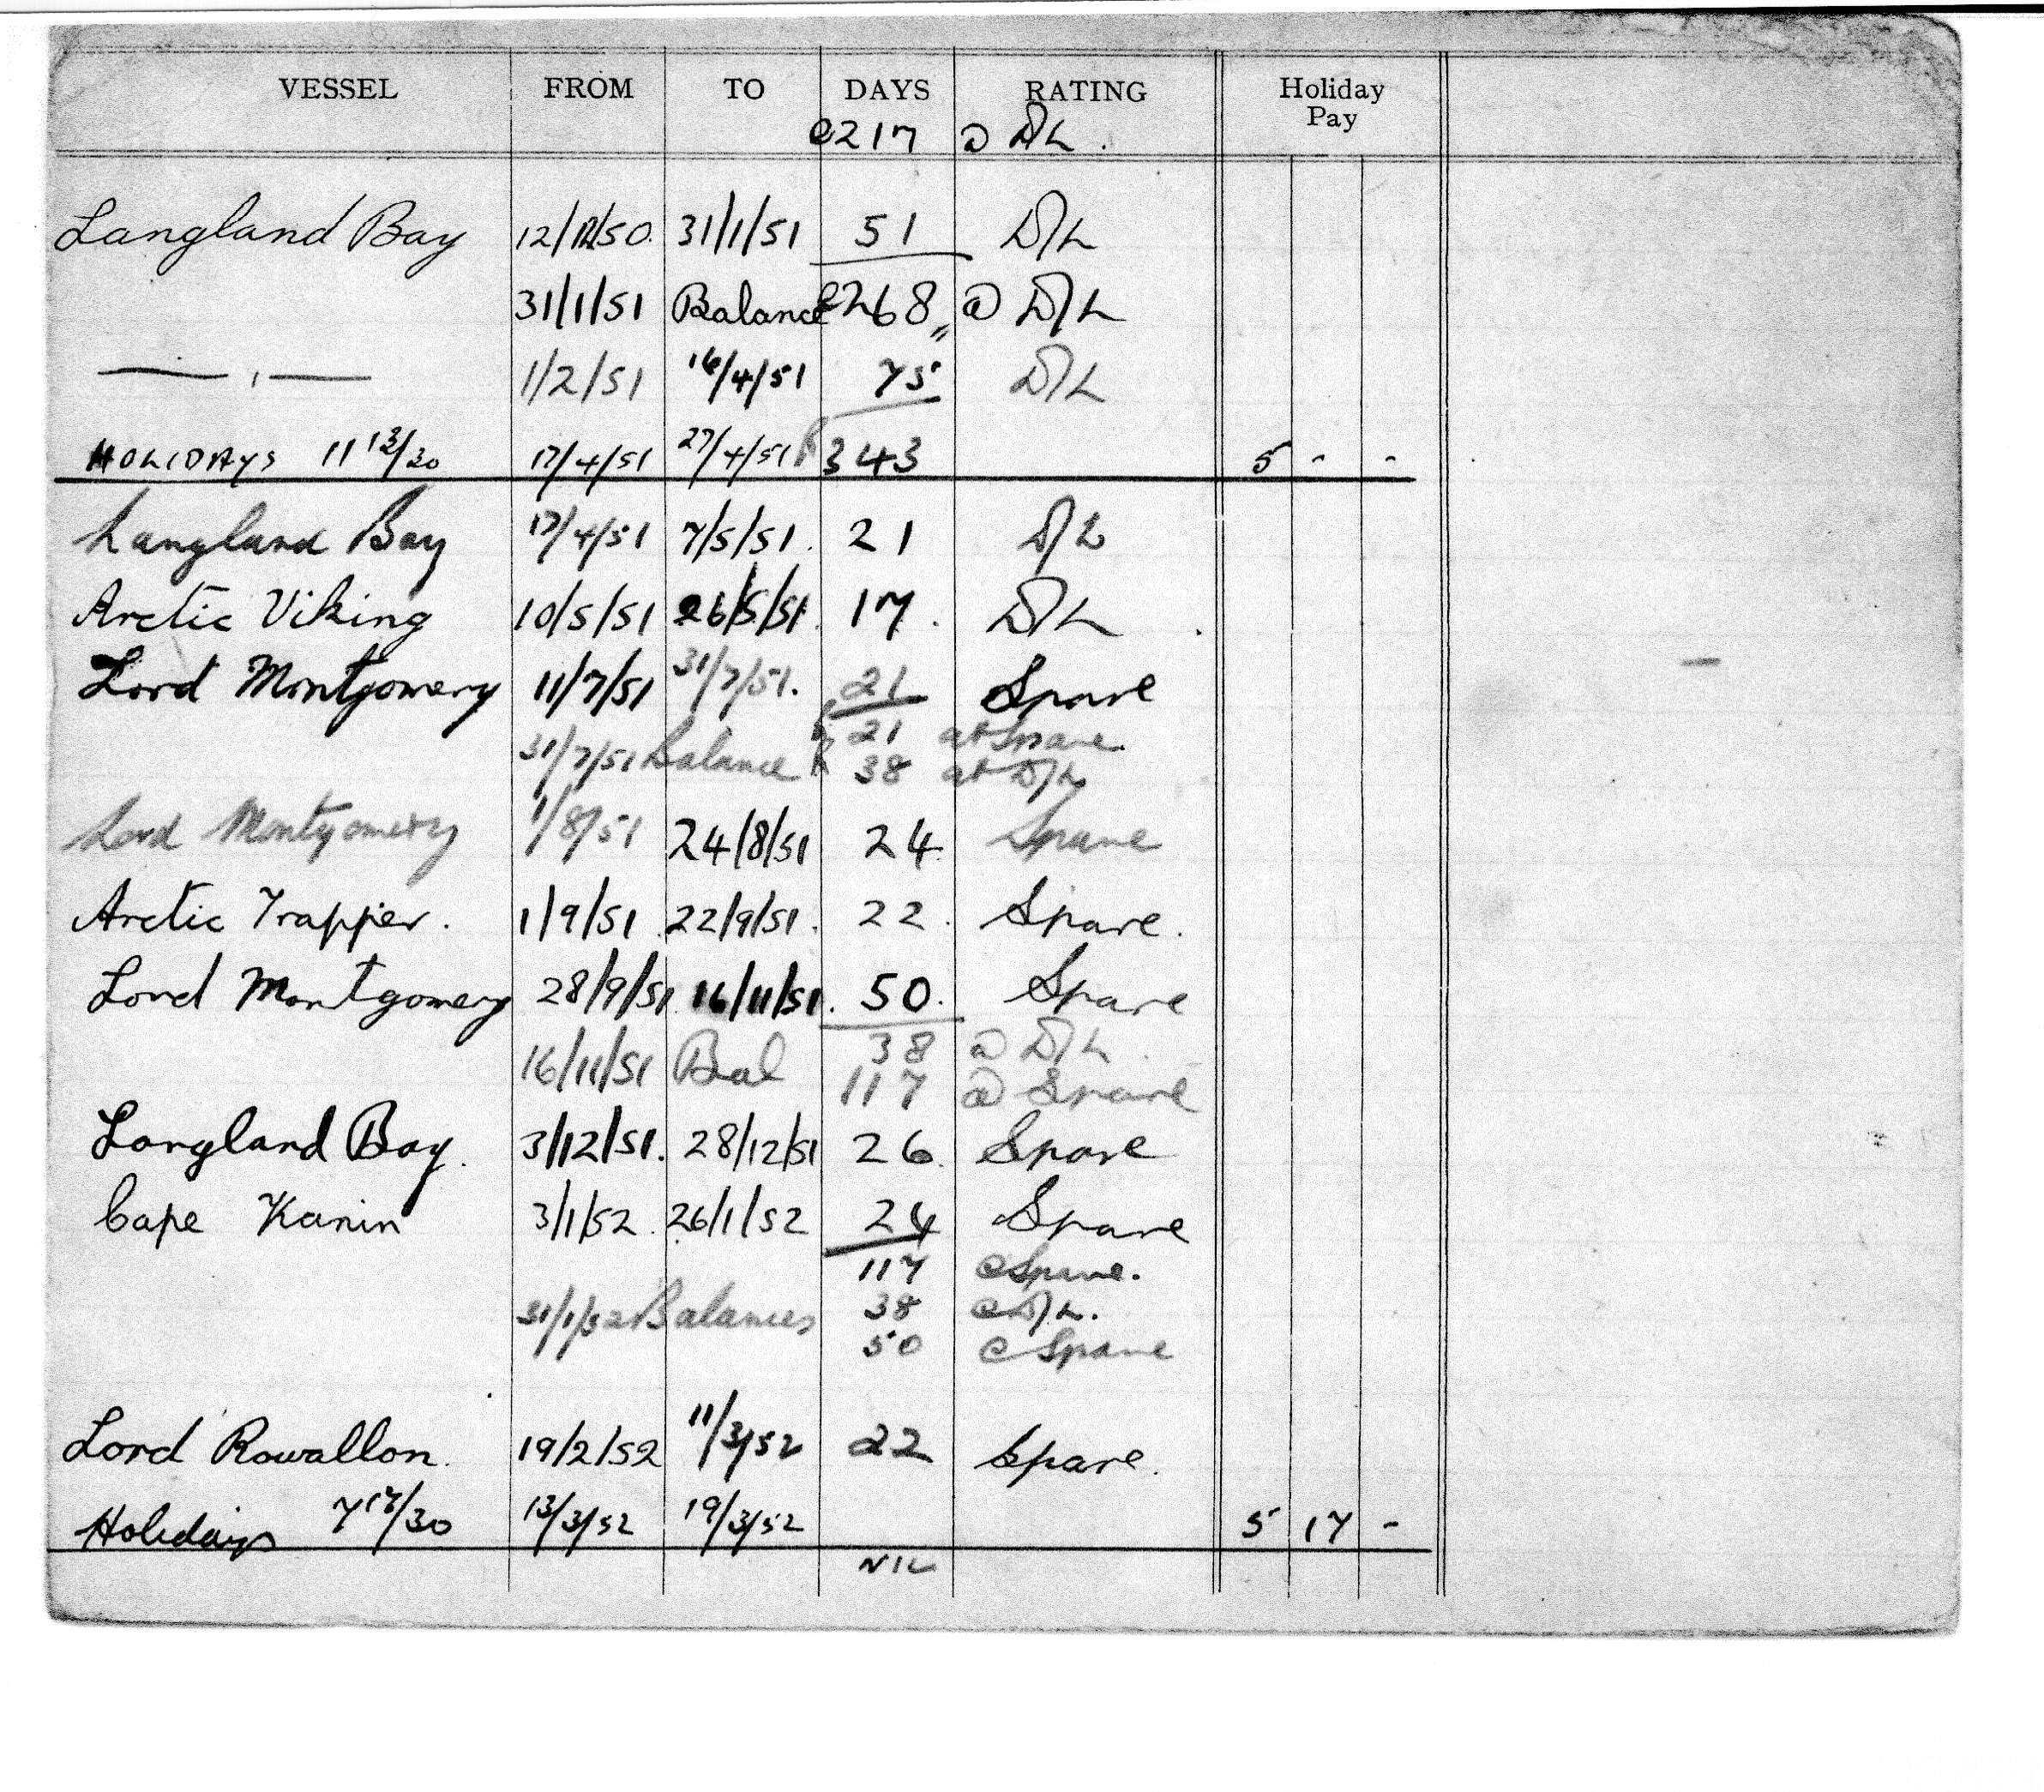 VESSEL FROM TO DAYS RATING Holiday Pay
217 @ D/L.
Langland Bay 12/12/50. 31/1/51 51 D/L
31/1/51 Balance 268 @ D/L
— " — 1/2/51 16/4/51 75 D/L
HOLIDAYS 11 13/30 17/4/51 27/4/51 343 5 - -
Langland Bay 17/4/51 7/5/51. 21 D/L
Arctic Viking 10/5/51 26/5/51. 17. D/L
Lord Montgomery 11/7/51 31/7/51. 21 Spare
21 at Spare.
31/7/51 Balance 38 at D/L
Lord Montgomery 1/8/51 24/8/51 24. Spare
Arctic Trapper. 1/9/51. 22/9/51. 22. Spare.
Lord Montgomery 28/9/51 16/11/51. 50. Spare
38 @ D/L.
16/11/51 Bal 117 @ Spare
Langland Bay. 3/12/51. 28/12/51 26. Spare
Cape Kanin 3/1/52. 26/1/52 24 Spare
117 @ Spare.
31/1/52 Balances 38 @ D/L.
50 @ Spare
Lord Rowallon. 19/2/52 11/3/52 22 Spare.
Holidays 7 /30 13/3/52 19/3/52 5 17 -
NIL